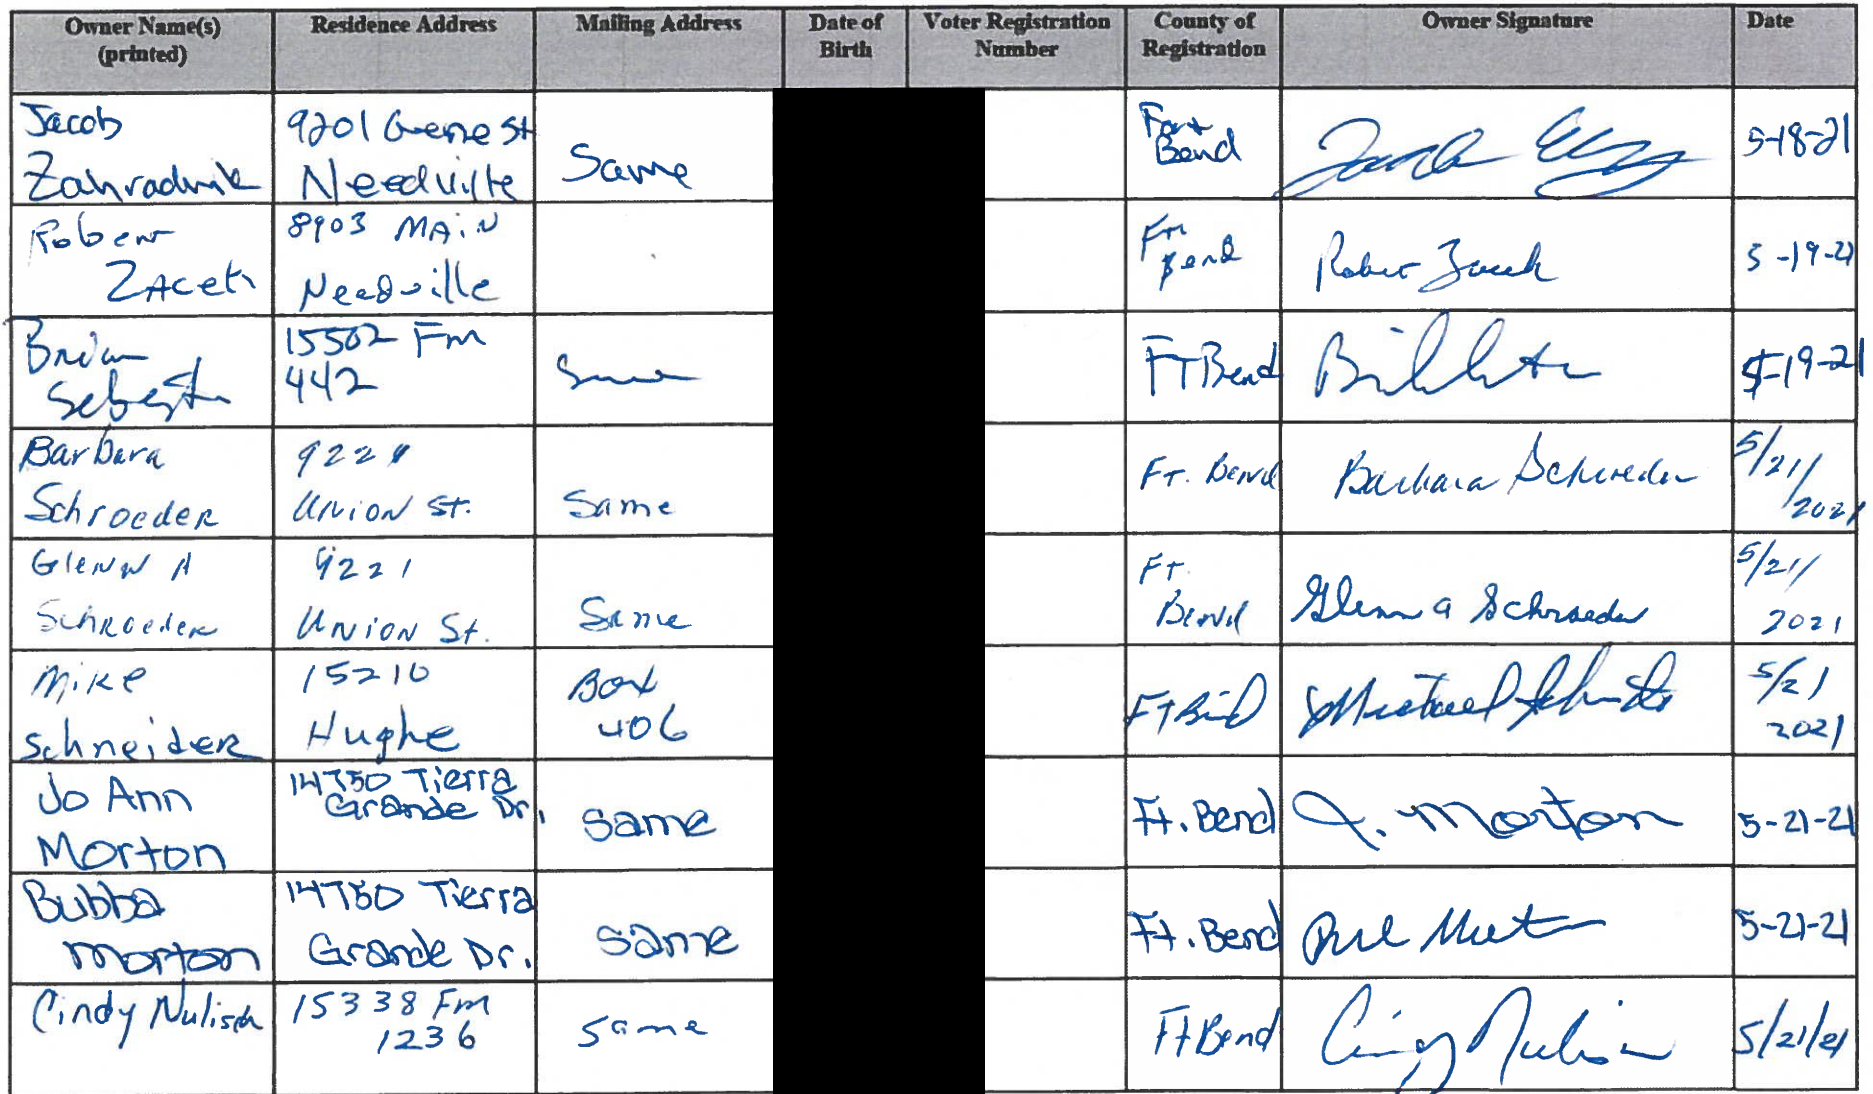 Owner Name(s) (printed) Residence Address Mailing Address Date of Birth Voter Registration Number County of Registration Owner Signature Date
Jacob Zahradnik 9201 Gene St Needville Same Fort Bend 5-18-21
Robert Zacek 8903 MAiN Needville Ft Bend Robert Zacek 5-19-21
Brian 15502 Fm 442 Same FT Bend 5-19-21
Barbara Schroeder Union St. Same Ft. Bend Barbara Schroeder 5/21/2021
Glenn A Schroeder 9221 Union St. Same Ft. Bend Glenn A Schroeder 5/21/2021
Mike Schneider 15210 Hughe Box 406 FT Bend Michael 5/21 2021
Jo Ann Morton 14750 Tierra Grande Dr. Same Ft. Bend J. Morton 5-21-21
Bubba Morton 14750 Tierra Grande Dr. Same Ft. Bend 5-21-21
Cindy Nulisch 15338 Fm 1236 Same Ft Bend Cindy 5/21/21